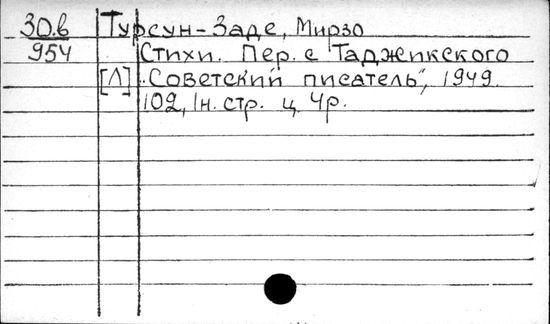 30.в Турсун-Заде, Мирзо
954 Стихи. Пер. с Таджикского
[Л] „Советский писатель", 1949.
102, 1н. стр. ц. 4р.